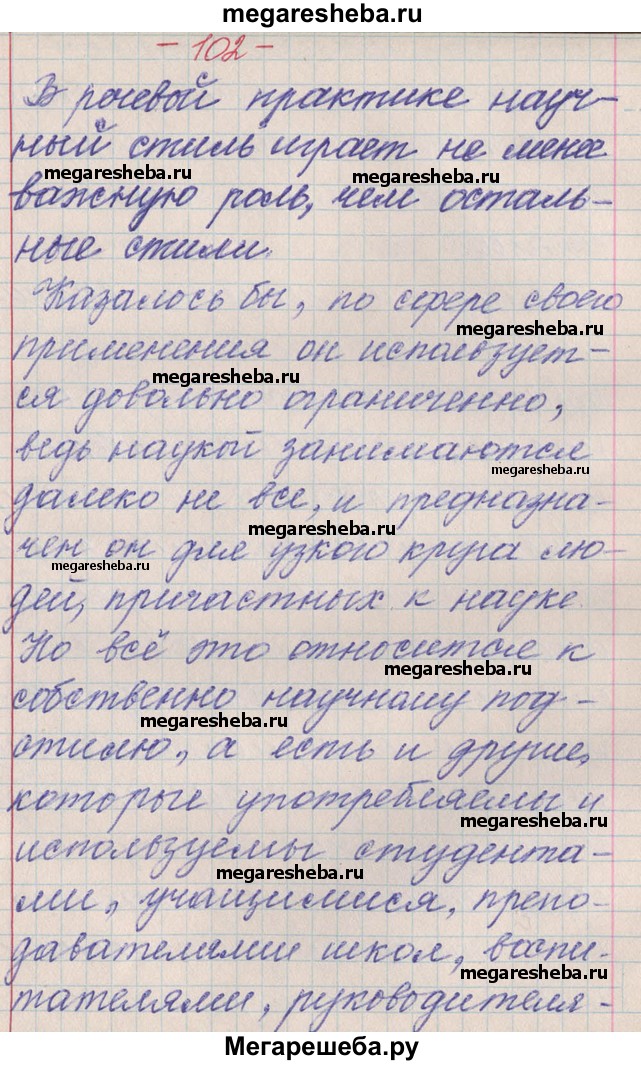 megaresheba.ru
- 102 -
В речевой практике науч-
ный стиль играет не менее
megaresheba.ru
megaresheba.ru
важную роль, чем осталь-
ные стили.
Казалось бы, по сфере своего
megaresheba.ru
применения он использует-
megaresheba.ru
ся довольно ограниченно,
ведь наукой занимаются
megaresheba.ru
далеко не все, и предназна-
megaresheba.ru
чен он для узкого круга лю-
megaresheba.ru
дей, причастных к науке.
Но всё это относится к
megaresheba.ru
собственно научному под-
megaresheba.ru
стилю, а есть и другие,
которые употребляемы и
megaresheba.ru
используемы студента-
megaresheba.ru
ми, учащимися, препо-
давателями школ, воспи-
megaresheba.ru
тателями, руководителя-
Мегарешеба.ру